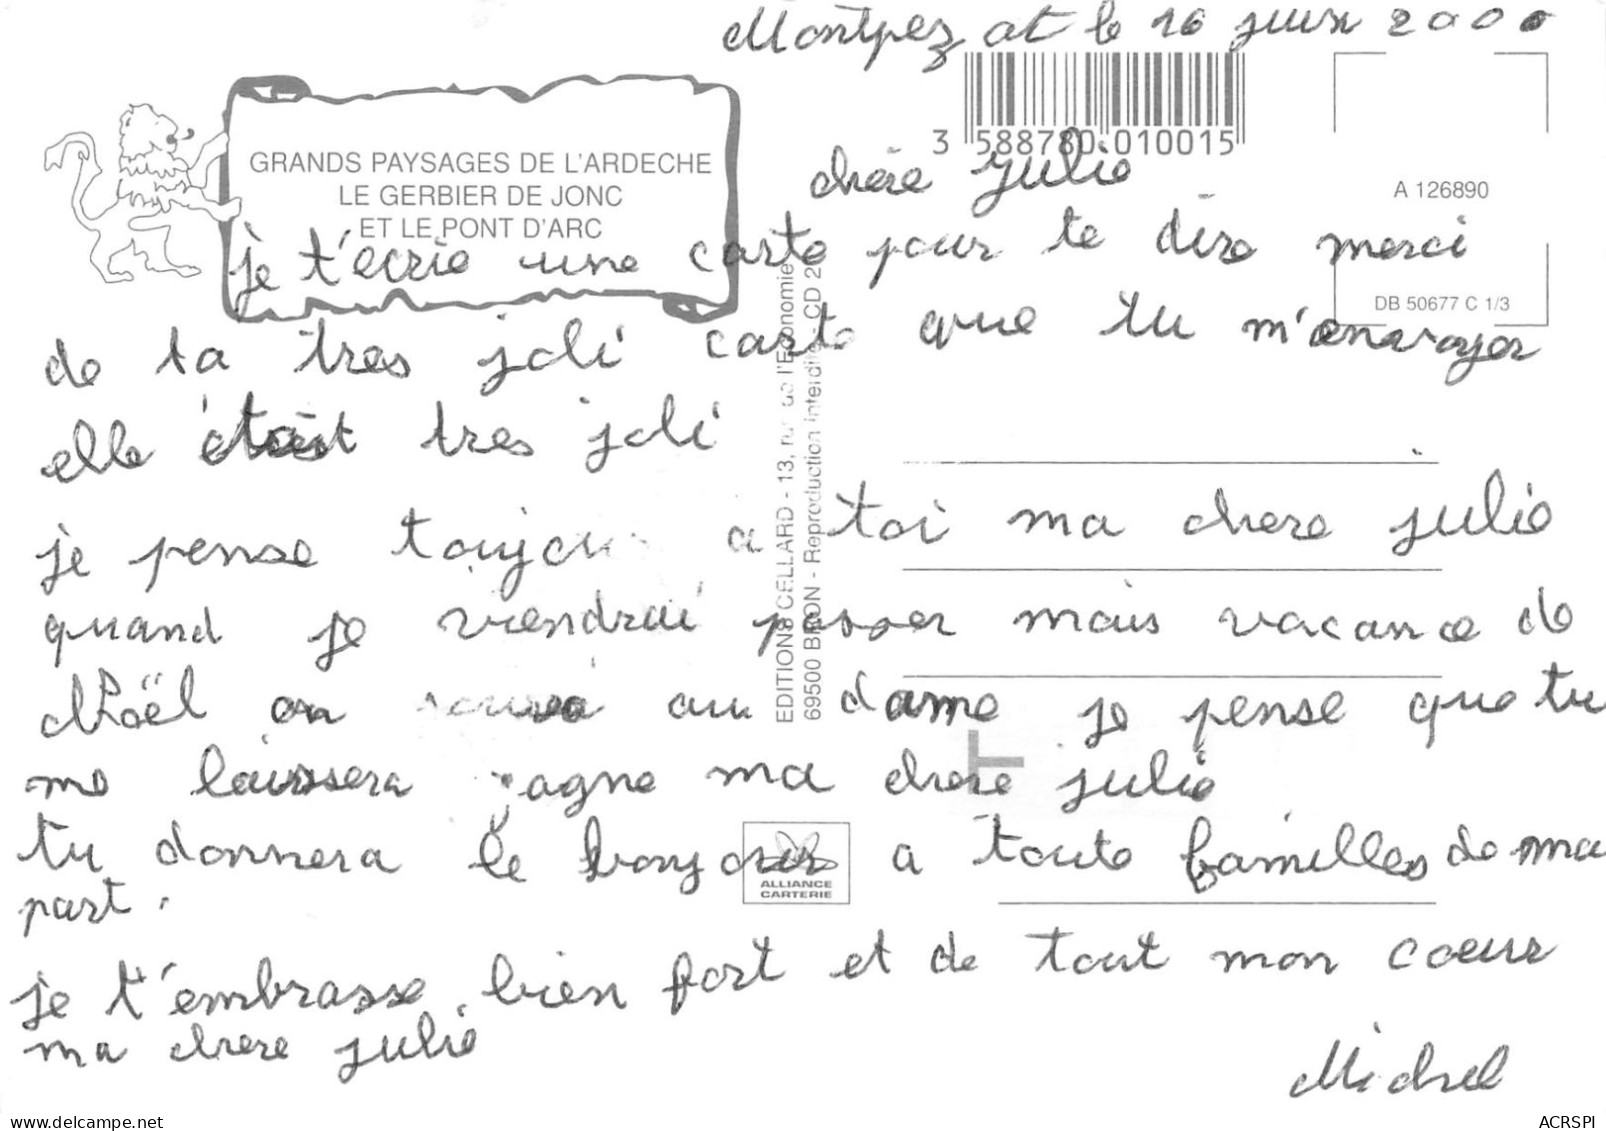 Montpezat le 16 juin 2000
3 588780 010015
GRANDS PAYSAGES DE L'ARDECHE
LE GERBIER DE JONC
ET LE PONT D'ARC
A 126890
DB 50677 C 1/3
chère julie
je t'ecrie une carte pour te dire merci
de ta tres joli carte que tu m'envoyer
elle était tres joli
je pense toujours a toi ma chere julie
quand je viendrai passer mais vacance de
Nöel on au dame je pense que tu
me laissera gagne ma chere julie
tu donnera le bonjour a toute familles de ma
part.
je t'embrasse bien fort et de tout mon coeur
ma chere julie
Michel
EDITIONS CELLARD - 13, rue de l'Economie
69500 BRON - Reproduction interdite CD 2
ALLIANCE
CARTERIE
delcampe.net
ACRSPI